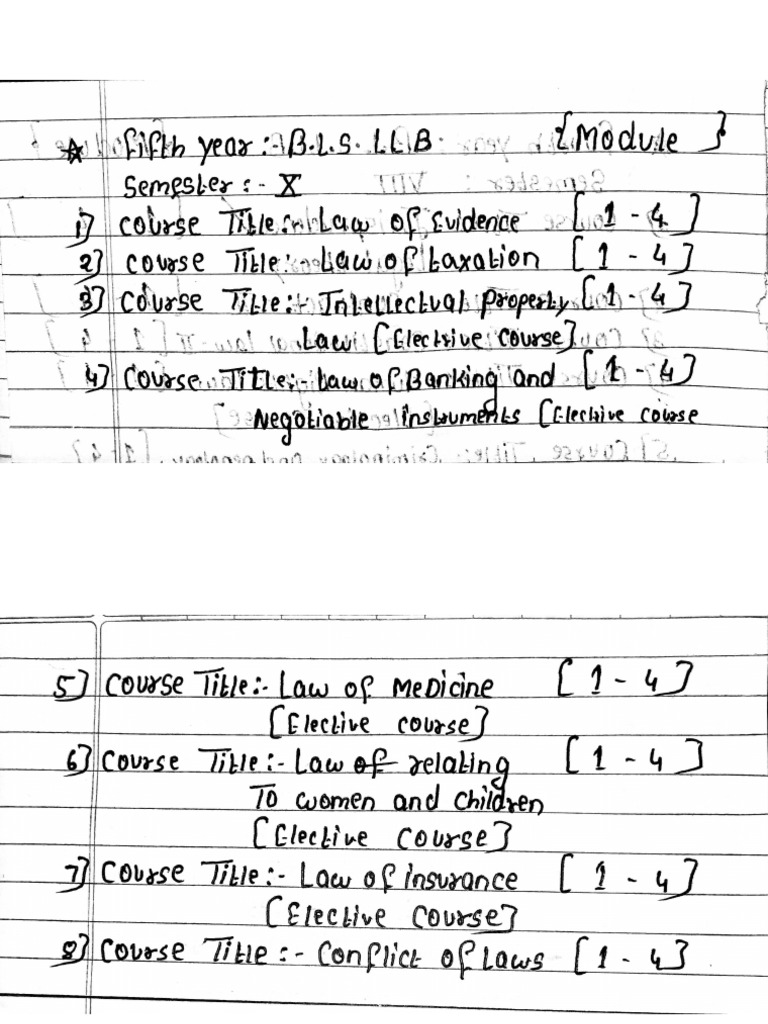 ☆ fifth year :- B.L.S. LLB. {Module }
Semester :- X
1] Course Title :- Law of Evidence [ 1 - 4 ]
2] Course Title :- Law of taxation [ 1 - 4 ]
3] Course Title :- Intellectual Property [ 1 - 4 ]
Law [Elective Course]
4] Course Title :- Law of Banking and [ 1 - 4 ]
Negotiable instruments [Elective course
5] Course Title :- Law of Medicine [ 1 - 4 ]
[Elective course]
6] Course Title :- Law relating [ 1 - 4 ]
To women and children
[Elective course]
7] Course Title :- Law of insurance [ 1 - 4 ]
[Elective Course]
8] Course Title :- Conflict of Laws [ 1 - 4 ]